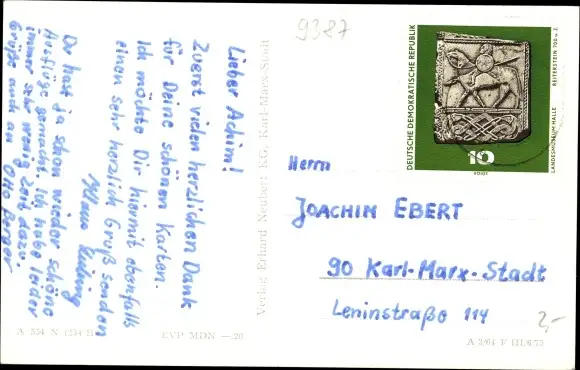 9387
Lieber Achim!
Zuerst vielen herzlichen Dank
für Deine schönen Karten.
Ich möchte Dir hiermit ebenfalls
einen sehr herzlich Gruß senden
Du hast ja schon wieder schöne
Ausflüge gemacht. Ich habe leider
immer sehr wenig Zeit dazu.
Grüße auch an Otto Berger
Verlag Erhard Neubert KG, Karl-Marx-Stadt
DEUTSCHE DEMOKRATISCHE REPUBLIK
10
LANDESMUSEUM HALLE
REITERSTEIN 700 u. Z.
Herrn
JOACHIM EBERT
90 Karl-Marx-Stadt
Leninstraße 114
2,-
EVP MDN —.20